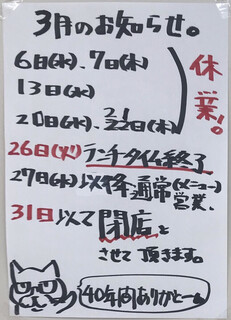 3月のお知らせ。
6日(水)、7日(木)
13日(水)
20日(水)、21、22日(木)
休業!。
26日(火)ランチタイム終了
27日(水)以降通常(メニュー)営業、
31日以て閉店と
させて頂きます。
40年間ありがとー